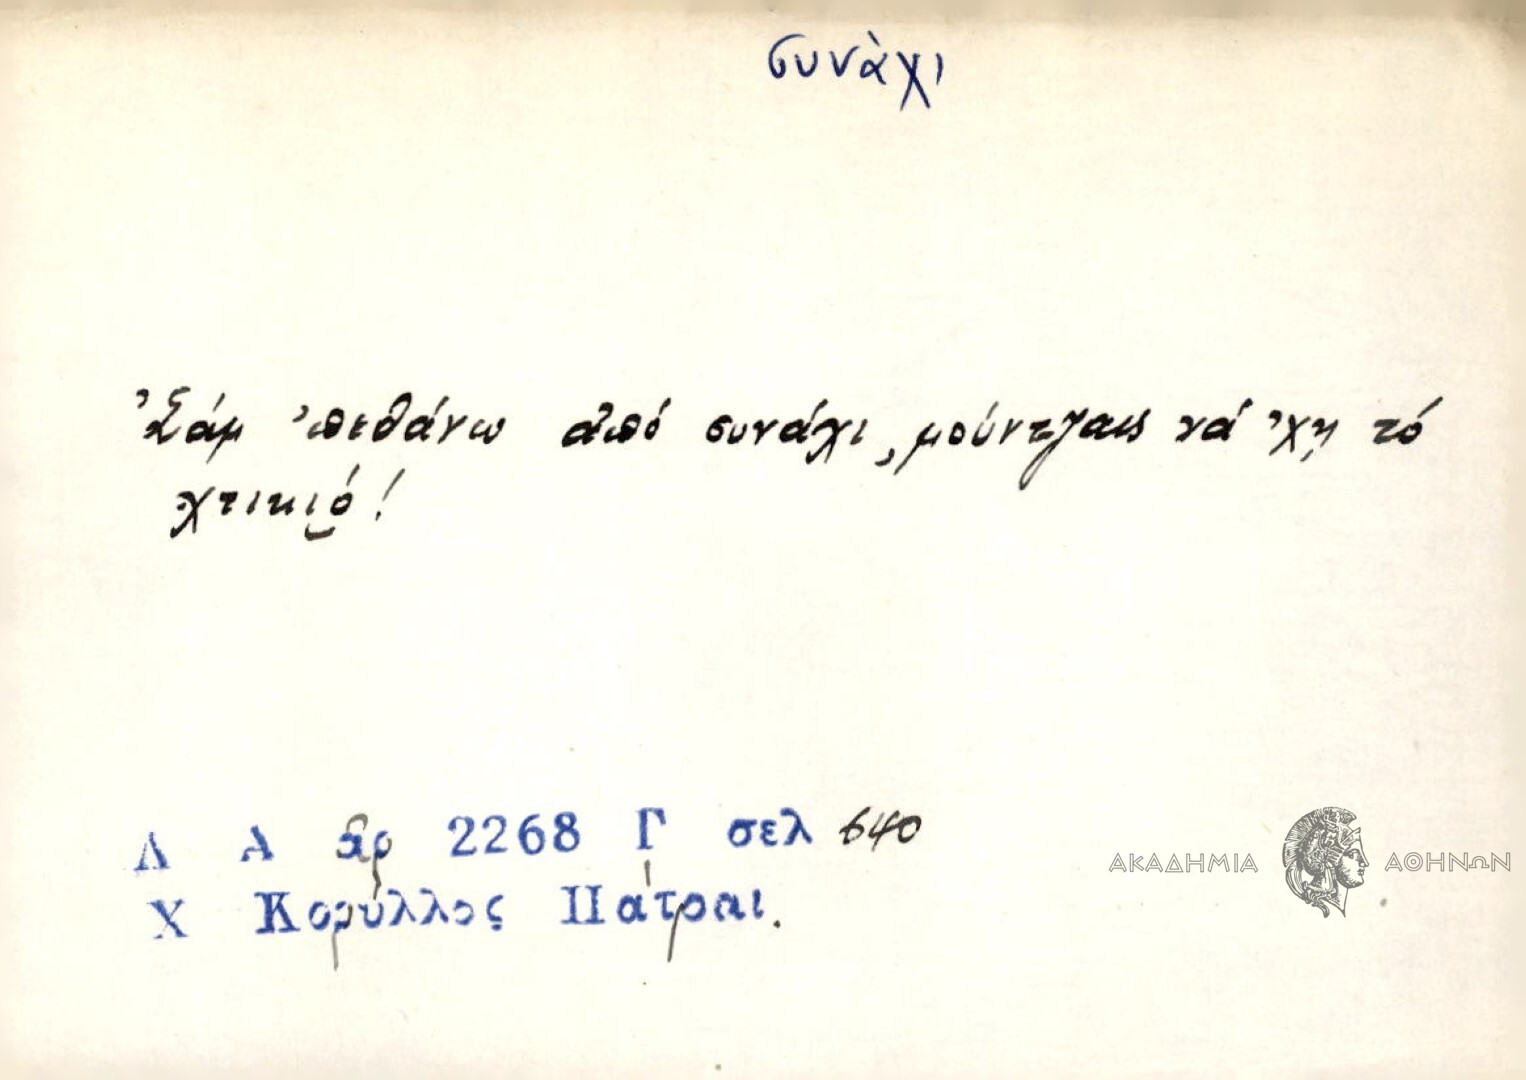 συνάχι
Σάμ 'πεθάνω ἀπό συνάχι, μούντζαις νά 'χῃ τό
χτικιό!
Λ Α ἀρ 2268 Γ σελ 640
Χ Κορύλλος Πάτραι.
ΑΚΑΔΗΜΙΑ ΑΘΗΝΩΝ